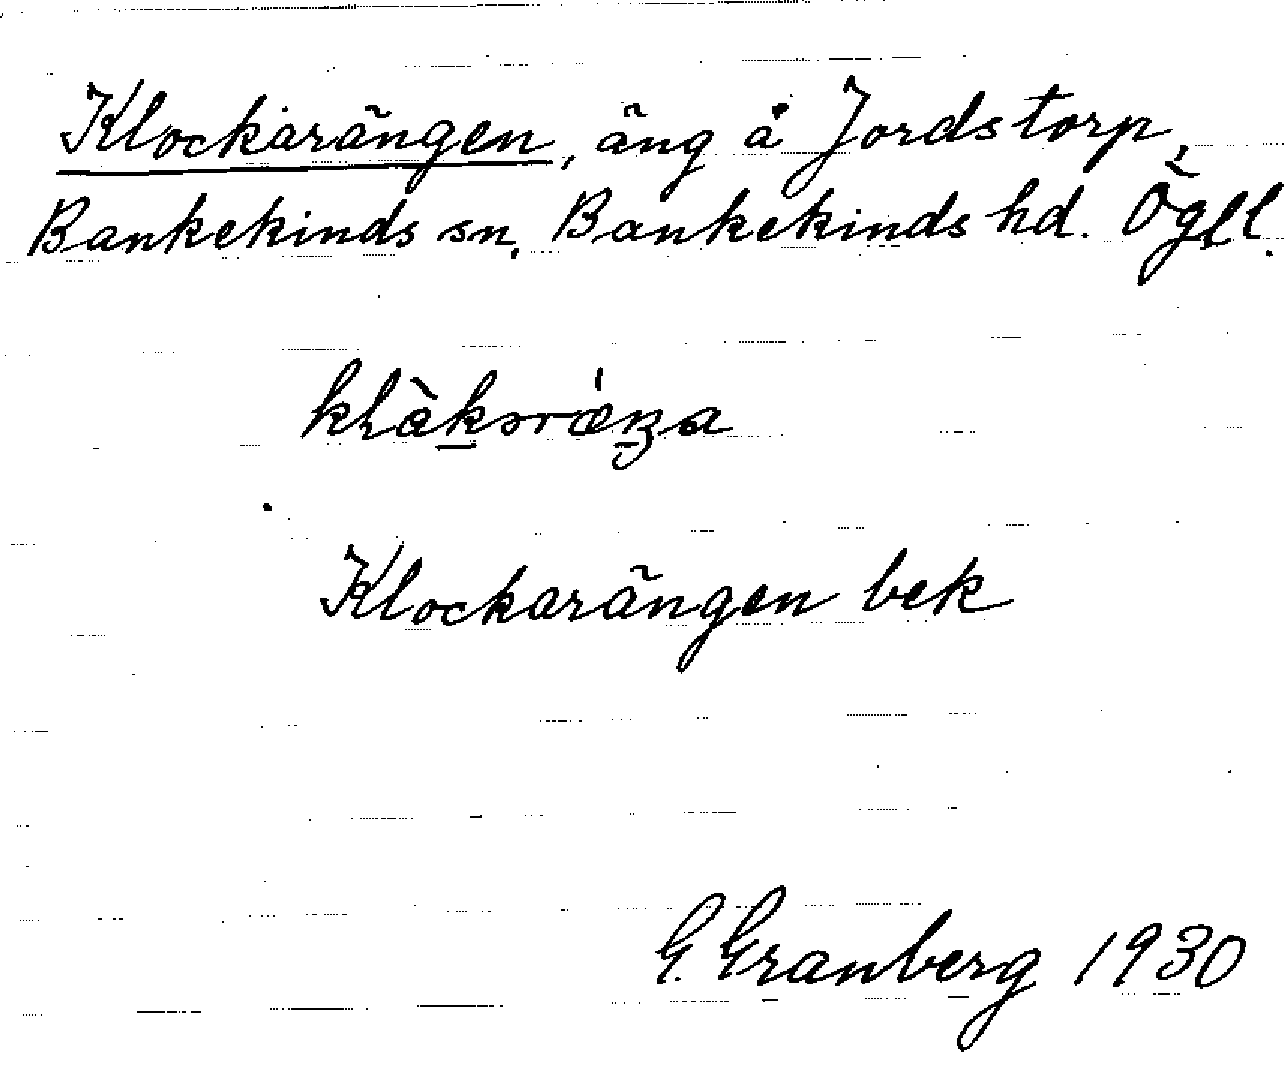 Klockarängen, äng å Jordstorp,
Bankekinds sn, Bankekinds hd. Ögtl.
Klockarängen bek
G. Granberg 1930